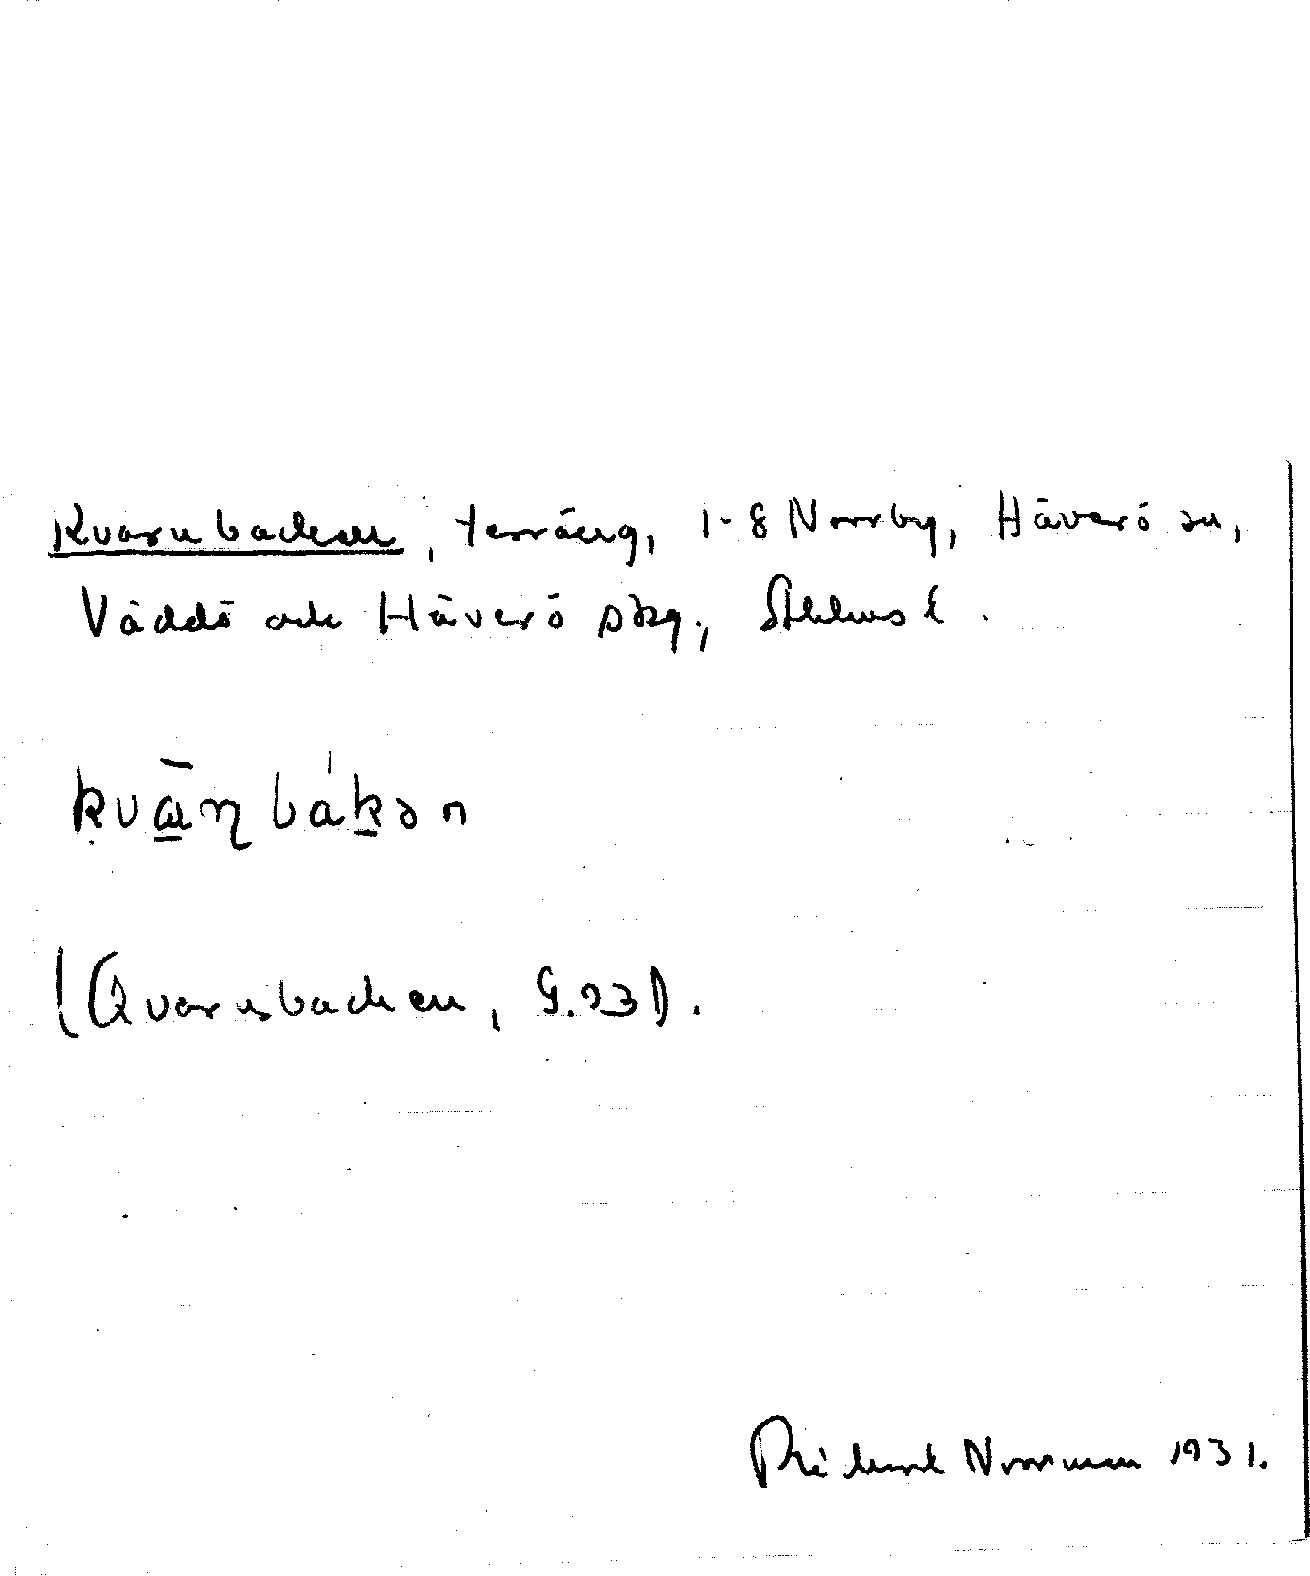 Kvarnbacken, terräng, 1-8 Norrby, Häverö sn,
Väddö och Häverö skg., Sthlms l.
kvān̨bákən
(Qvarnbacken, G.23).
Rickard Norrman 1931.